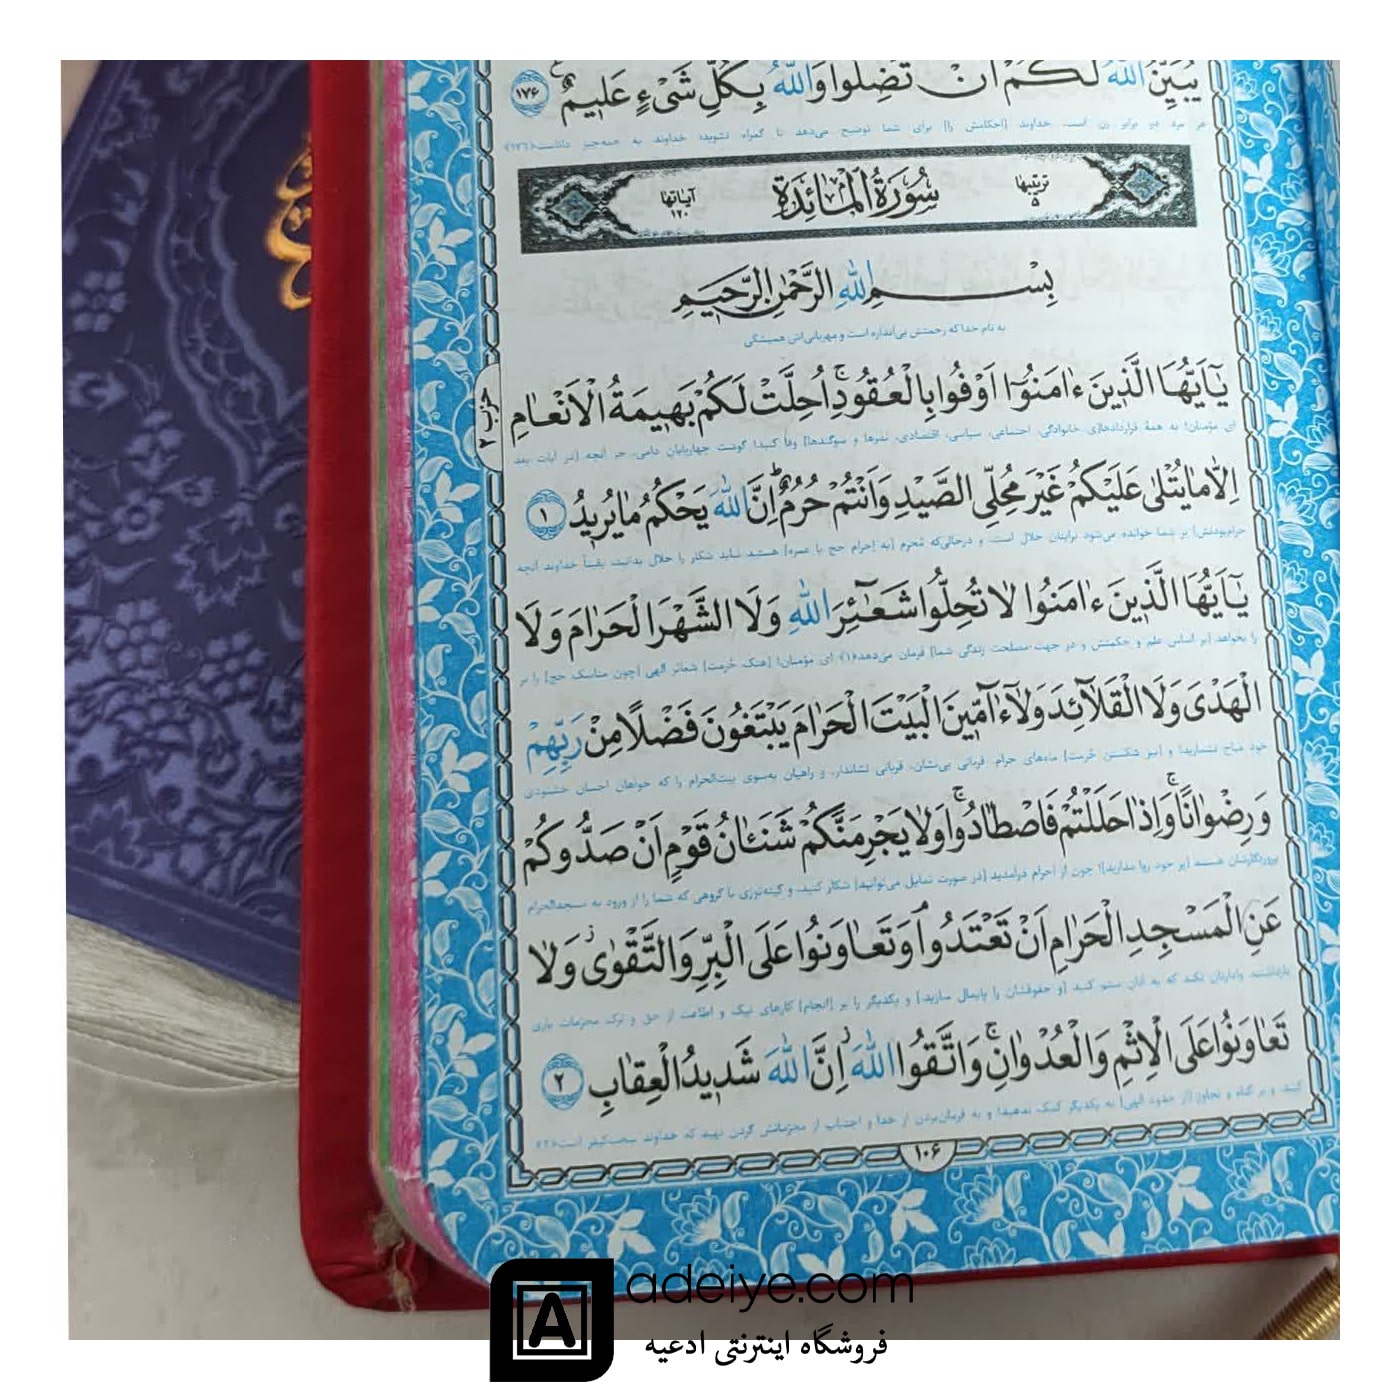 يُبَيِّنُ اللّٰهُ لَكُمْ اَنْ تَضِلُّوا وَاللّٰهُ بِكُلِّ شَىْءٍ عَلِيمٌ ۱۷۶
هر مرد دو برابر زن است. خداوند [احکامش را] برای شما توضیح می‌دهد تا گمراه نشوید؛ خداوند به همه‌چیز داناست‌﴿۱۷۶﴾
ترتیبها ۵ سُورَةُ الْمَائِدَة آیاتها ۱۲۰
بِسْمِ اللّٰهِ الرَّحْمٰنِ الرَّحِيمِ
به نام خدا که رحمتش بی‌اندازه است و مهربانی‌اش همیشگی
يٰٓاَيُّهَا الَّذِينَ ءٰامَنُوٓا اَوْفُوا بِالْعُقُودِۚ اُحِلَّتْ لَكُمْ بَهِيمَةُ الْاَنْعٰامِ
حزب ۲
ای مؤمنان! به همهٔ قراردادها[ی خانوادگی، اجتماعی، سیاسی، اقتصادی، نذرها و سوگندها] وفا کنید! گوشت چهارپایان دامی، جز آنچه [در آیات بعد
اِلّٰا مٰا يُتْلٰى عَلَيْكُمْ غَيْرَ مُحِلِّى الصَّيْدِ وَاَنْتُمْ حُرُمٌۗ اِنَّ اللّٰهَ يَحْكُمُ مٰا يُرِيدُ ۱
حرام‌بودنش] بر شما خوانده می‌شود برایتان حلال است، و درحالی‌که مُحرم [به اِحرام حج یا عمره] هستید نباید شکار را حلال بدانید، یقیناً خداوند آنچه
يٰٓاَيُّهَا الَّذِينَ ءٰامَنُوا لٰا تُحِلُّوا شَعٰٓائِرَ اللّٰهِ وَلَا الشَّهْرَ الْحَرٰامَ وَلَا
را بخواهد [بر اساس علم و حکمتش و در جهت مصلحت زندگی شما] فرمان می‌دهد‌﴿۱﴾ ای مؤمنان! [هتک حُرمت] شعائر الهی [چون مناسک حج] را بر
الْهَدْىَ وَلَا الْقَلٰٓائِدَ وَلٰٓا ءٰٓامِّينَ الْبَيْتَ الْحَرٰامَ يَبْتَغُونَ فَضْلًا مِنْ رَبِّهِمْ
خود مباح نشمارید! و [نیز شکستن حُرمت] ماه‌های حرام، قربانی بی‌نشان، قربانی نشاندار، و راهیان به‌سوی بیت‌الحرام را که خواهان احسان خشنودی
وَرِضْوٰانًاۚ وَاِذٰا حَلَلْتُمْ فَاصْطٰادُواۚ وَلٰا يَجْرِمَنَّكُمْ شَنَـَٔانُ قَوْمٍ اَنْ صَدُّوكُمْ
پروردگارشان هستند [بر خود روا مدارید]! چون از احرام درآمدید [در صورت تمایل می‌توانید] شکار کنید، و کینه‌توزی با گروهی که شما را از ورود به مسجدالحرام
عَنِ الْمَسْجِدِ الْحَرٰامِ اَنْ تَعْتَدُواۘ وَتَعٰاوَنُوا عَلَى الْبِرِّ وَالتَّقْوٰى وَلٰا
بازداشتند وادارتان نکند که به آنان ستم کنید [و حقوقشان را پایمال سازید] و یکدیگر را بر [انجام] کارهای نیک و اطاعت از حق و ترک محرّمات یاری
تَعٰاوَنُوا عَلَى الْاِثْمِ وَالْعُدْوٰانِۚ وَاتَّقُوا اللّٰهَ اِنَّ اللّٰهَ شَدِيدُ الْعِقٰابِ ۲
کنید، و بر گناه و تجاوز [از حدود الهی] به یکدیگر کمک ندهید! و به فرمان‌بردن از خدا و اجتناب از محرّماتش گردن نهید که خداوند سخت‌کیفر است‌﴿۲﴾
۱۰۶
A adeiye.com
فروشگاه اینترنتی ادعیه